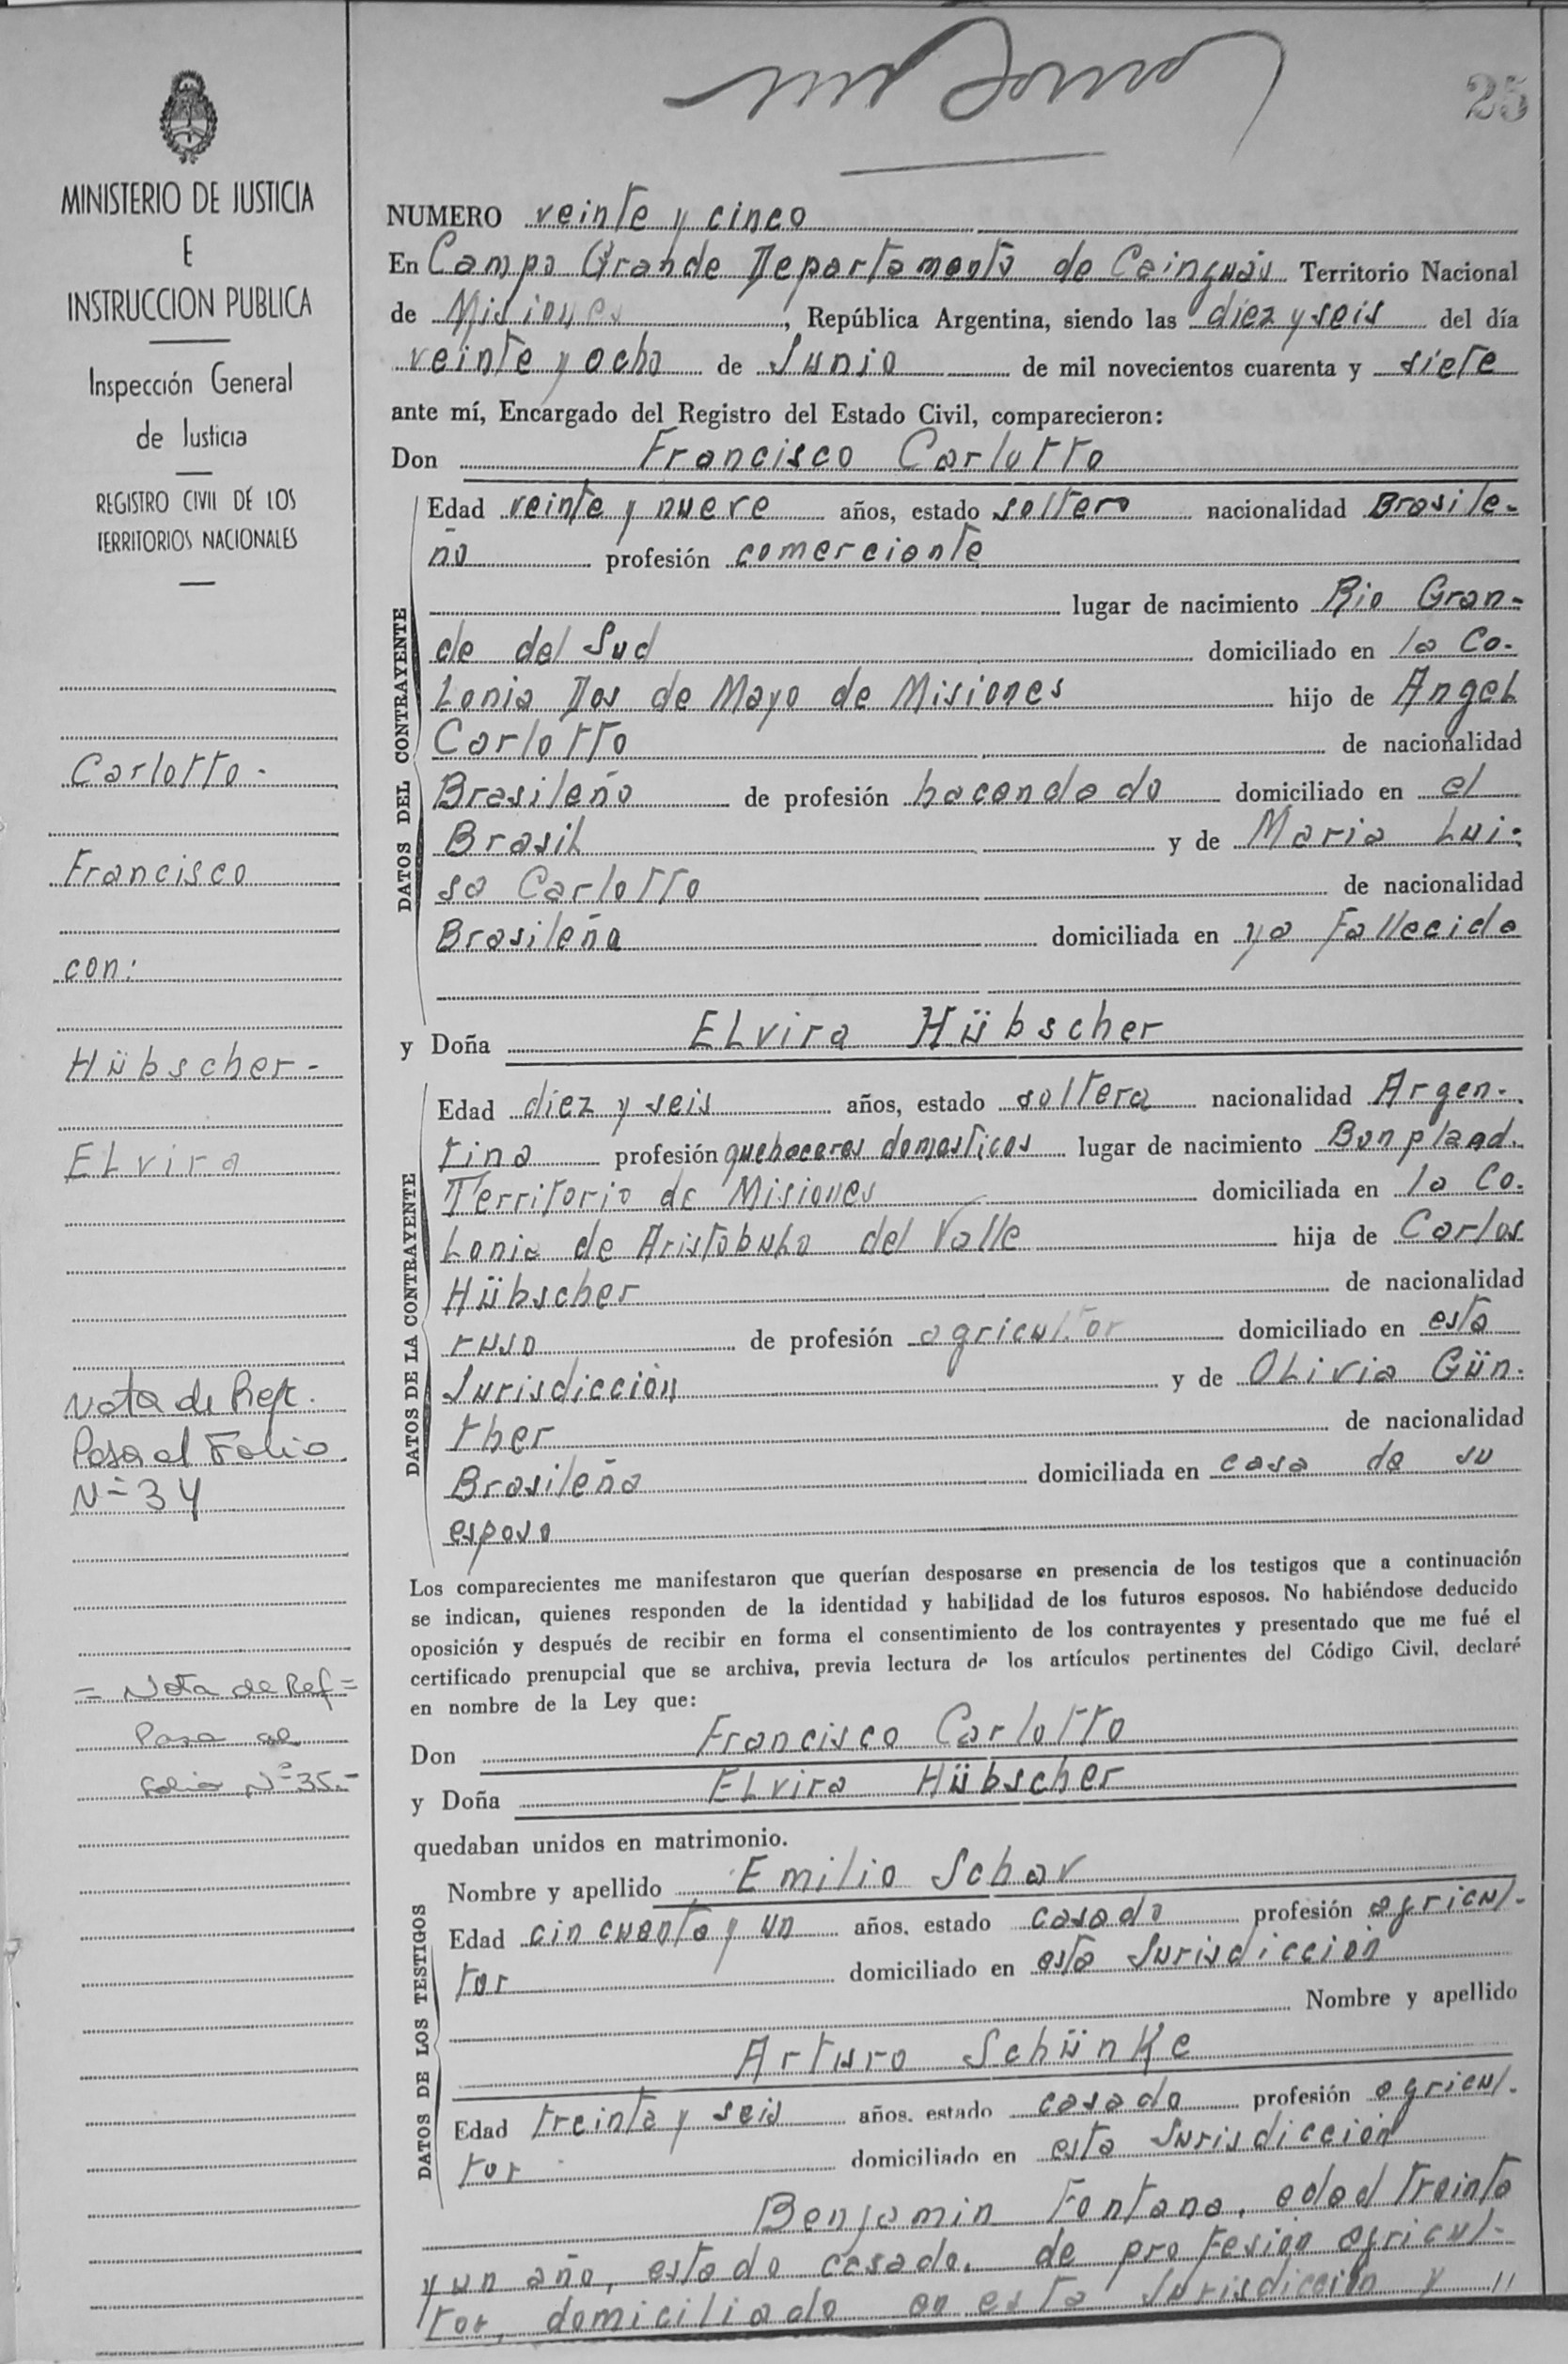 25
MINISTERIO DE JUSTICIA
E
INSTRUCCION PUBLICA
Inspección General
de Justicia
REGISTRO CIVIL DE LOS
TERRITORIOS NACIONALES
Carlotto-
Francisco
con:
Hübscher-
ELvira
Nota de Ref.
Pasa al Folio
Nº 34
= Nota de Ref =
Pasa al
Folio Nº 35.-
NUMERO veinte y cinco
En Campo Grande Departamento de Cainguás Territorio Nacional
de Misiones, República Argentina, siendo las diez y seis del día
veinte y ocho de Junio de mil novecientos cuarenta y siete
ante mí, Encargado del Registro del Estado Civil, comparecieron:
Don Francisco Carlotto
DATOS DEL CONTRAYENTE
Edad veinte y nueve años, estado soltero nacionalidad Brasile-
ño profesión comerciante
lugar de nacimiento Rio Gran-
de del Sud domiciliado en la Co-
Lonia Dos de Mayo de Misiones hijo de AngeL
Carlotto de nacionalidad
Brasileño de profesión hacendado domiciliado en el
BrasiL y de Maria Lui-
sa Carlotto de nacionalidad
Brasileña domiciliada en ya Fallecida
y Doña ELvira Hübscher
DATOS DE LA CONTRAYENTE
Edad diez y seis años, estado soltera nacionalidad Argen-
tina profesión quehaceres domesticos lugar de nacimiento Bonpland.
Territorio de Misiones domiciliada en la Co-
Lonia de AristobuLo del Valle hija de Carlos
Hübscher de nacionalidad
ruso de profesión agricultor domiciliado en esta
Jurisdicción y de OLivia Gün-
ther de nacionalidad
Brasileña domiciliada en casa de su
esposo
Los comparecientes me manifestaron que querían desposarse en presencia de los testigos que a continuación
se indican, quienes responden de la identidad y habilidad de los futuros esposos. No habiéndose deducido
oposición y después de recibir en forma el consentimiento de los contrayentes y presentado que me fué el
certificado prenupcial que se archiva, previa lectura de los artículos pertinentes del Código Civil, declaré
en nombre de la Ley que:
Don Francisco Carlotto
y Doña ELvira Hübscher
quedaban unidos en matrimonio.
DATOS DE LOS TESTIGOS
Nombre y apellido Emilio Schar
Edad cincuenta y un años, estado casado profesión agricul-
tor domiciliado en esta Jurisdicción
Nombre y apellido
Arturo SchünKe
Edad treinta y seis años, estado casado profesión agricul-
tor domiciliado en esta Jurisdicción
Benjamin Fontana, edad treinta
y un año, estado casado, de profesión agricul-
tor, domiciliado en esta Jurisdicción y //